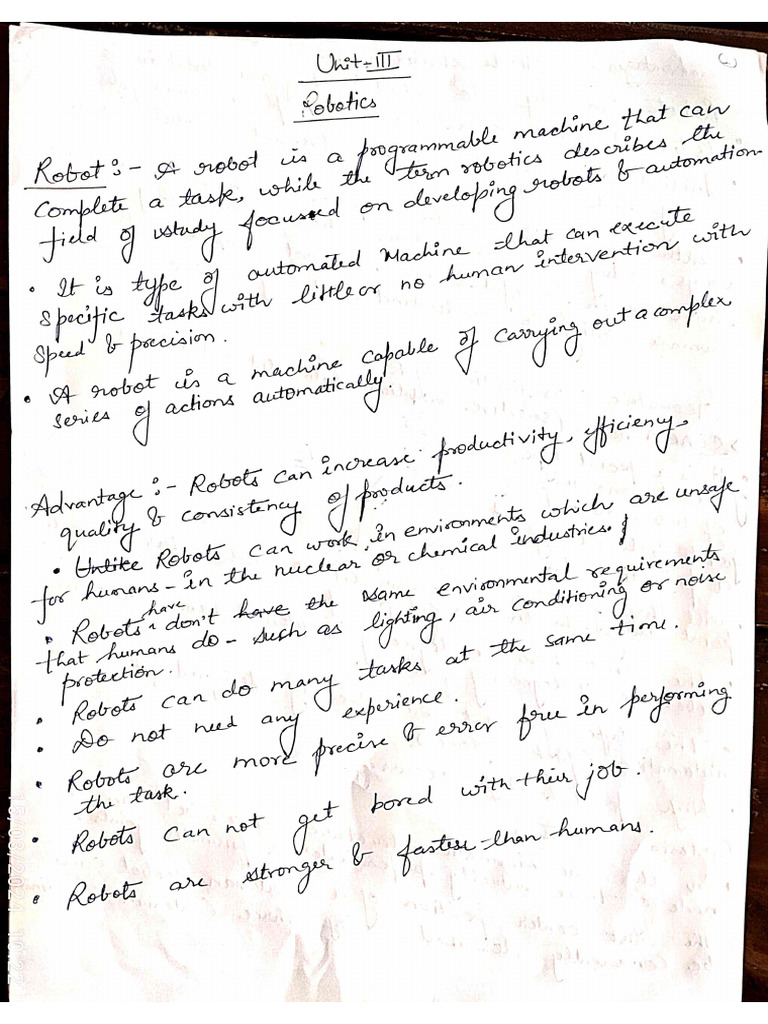 Unit-III
Robotics
Robot :- A robot is a programmable machine that can
complete a task, while the term robotics describes the
field of study focused on developing robots & automation
• It is type of automated Machine that can execute
specific tasks with little or no human intervention with
speed & precision.
• A robot is a machine capable of carrying out a complex
series of actions automatically.
Advantage :- Robots can increase productivity, efficiency,
quality & consistency of products.
• Unlike Robots can work in environments which are unsafe
for humans - in the nuclear or chemical industries.
• Robots have don't have the same environmental requirements
that humans do - such as lighting, air conditioning or noise
protection.
• Robots can do many tasks at the same time.
• Do not need any experience.
• Robots are more precise & error free in performing
the task.
• Robots can not get bored with their job.
• Robots are stronger & faster than humans.